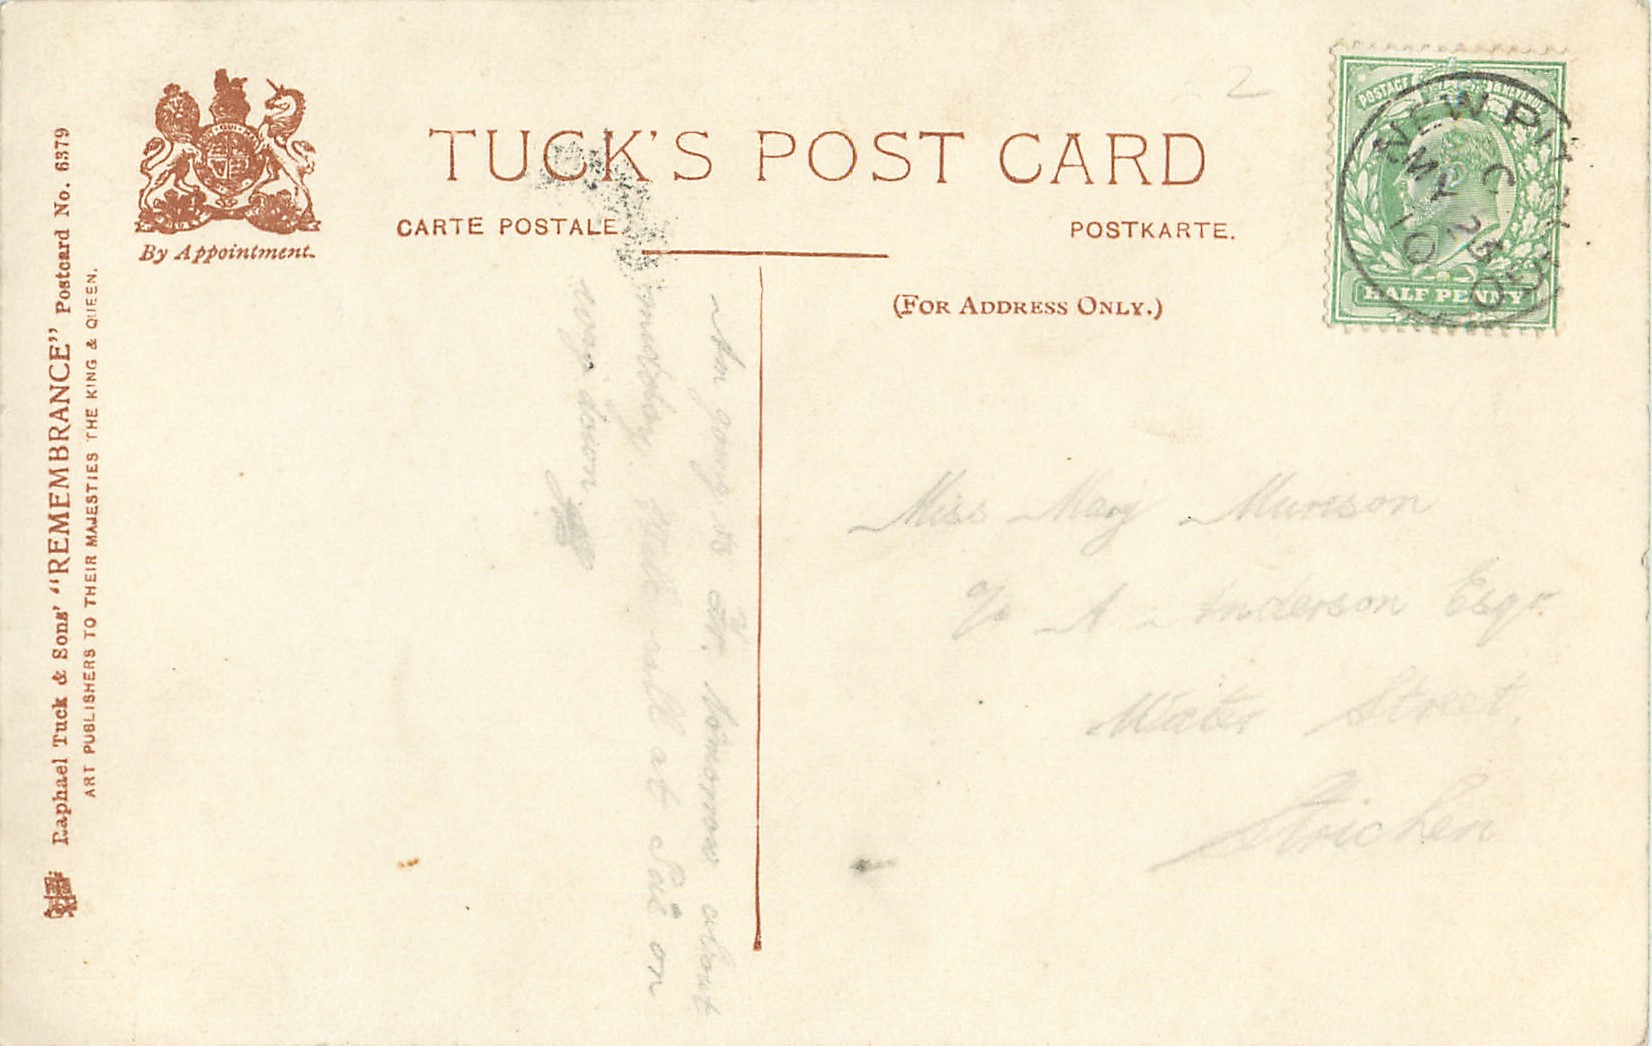 TUCK'S POST CARD
CARTE POSTALE.
POSTKARTE.
(FOR ADDRESS ONLY.)
By Appointment.
Raphael Tuck & Sons' "REMEMBRANCE" Postcard No. 6379
ART PUBLISHERS TO THEIR MAJESTIES THE KING & QUEEN.
2
POSTAGE & REVENUE
HALF PENNY
NEW PIT
C
MY 25
10
Am going to Fr. tomorrow about
midday. Will call at Sal on
way down
Miss Mary Murison
c/o A. Anderson Esqr.
Water Street,
Strichen